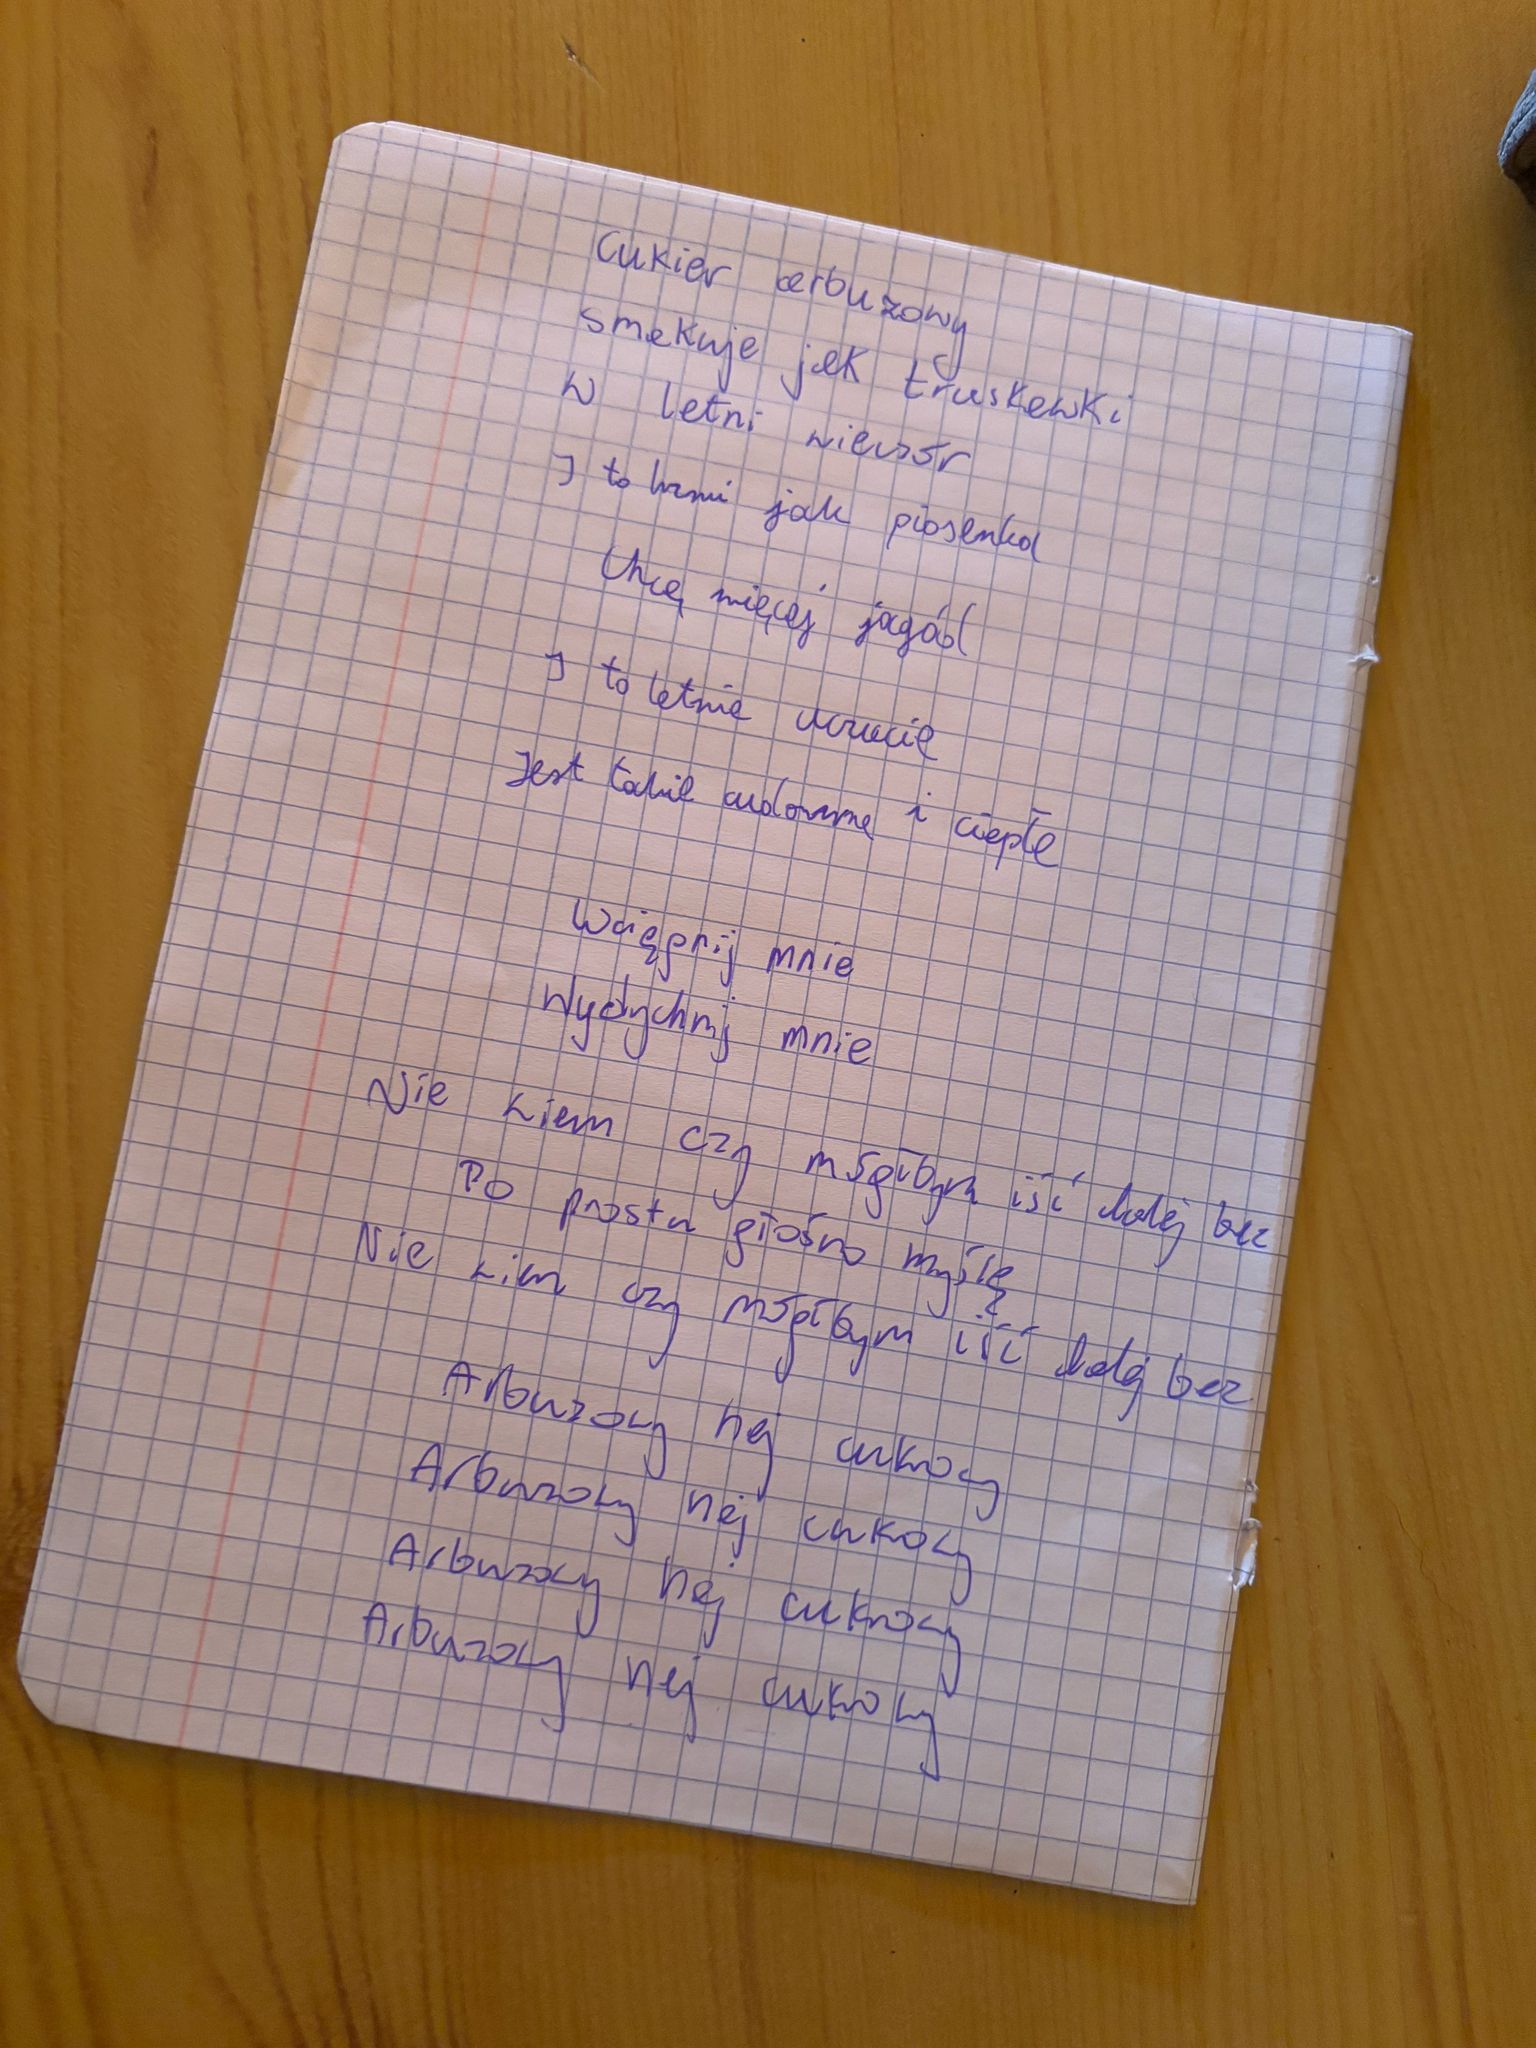 Cukier arbuzowy
smakuje jak truskawki
W letni wieczór
I to brzmi jak piosenka
Chcę więcej jagód
I to letnie uczucie
Jest takie cudowne i ciepłe
Wciągnij mnie
Wydychnij mnie
Nie wiem czy mógłbym iść dalej bez
Po prostu głośno myślę
Nie wiem czy mógłbym iść dalej bez
Arbuzowy hej cukrowy
Arbuzowy hej cukrowy
Arbuzowy hej cukrowy
Arbuzowy hej cukrowy